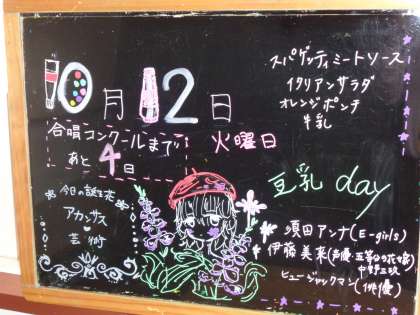 10月12日
火曜日
合唱コンクールまで
あと4日
スパゲッティミートソース
イタリアンサラダ
オレンジポンチ
牛乳
今日の誕生花
アカンサス
芸術
豆乳 day
須田アンナ(E-girls)
伊藤美来(声優・五等分の花嫁
中野三玖
ヒュー・ジャックマン(俳優)